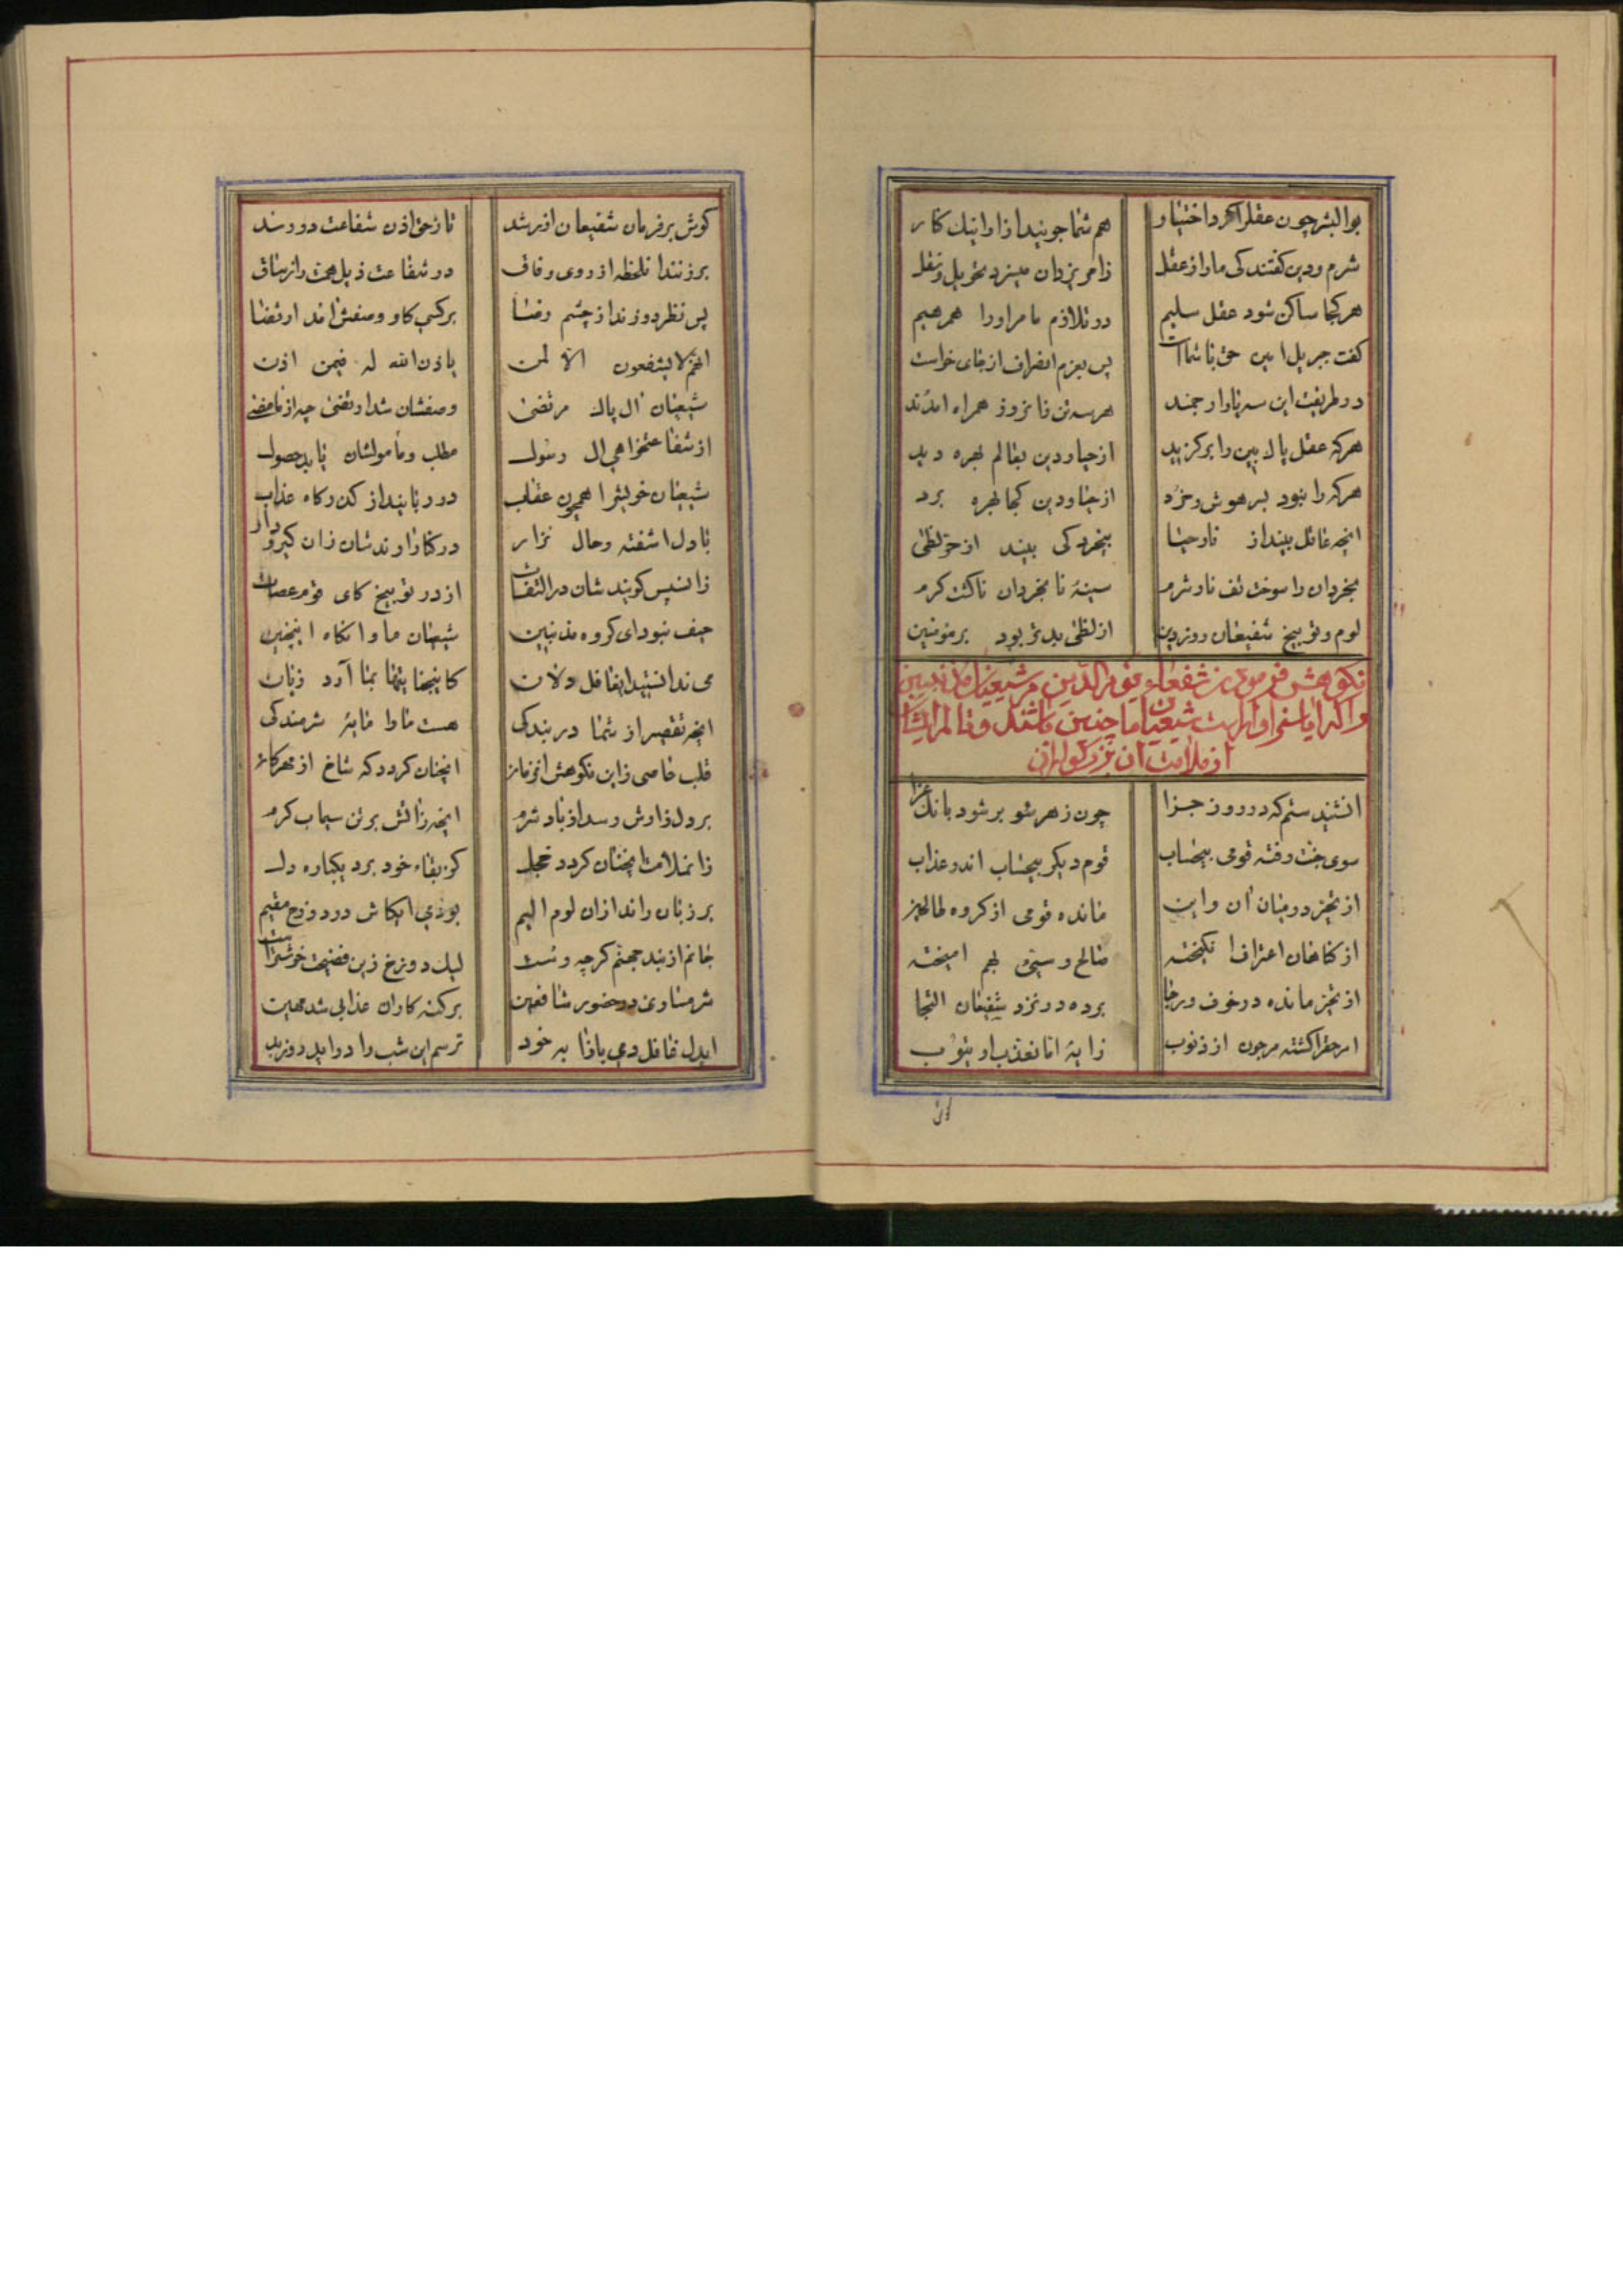 بوالبشر چون عقل را کرد اختیار هم شما جوئید از او اینک کنار
شرم و دین گفتند کی ما را ز عقل ز امر یزدان میسزد تحویل و نقل
هر کجا ساکن شود عقل سلیم در تلازم ما مر او را همرهیم
گفت جبریل امین حق با شماست پس بعزم انصراف از جای خواست
در طریقت این سه یار ارجمند هر سه تن تا مروز همراه آمدند
هر که عقل پاک بین را برگزید از حیا و دین بعالم بهره دید
هر که را نبود بسر هوش و خرد از حیا و دین کجا بهره برد
آنچه عاقل بیند از نار حیا بیخرد کی بیند از حر لظی
بخردان را سوخت تف نار شرم سینهٔ نابخردان ناگشت گرم
لوم و توبیخ شفیعان روز دین از لظی بدتر بود بر مومنین
نکوهش فرمودن شفعاء یوم الدین مر شیعیان مذنبین
را که آیا سزاوار است شیعیان ما چنین باشند و تالم ایشان
از ملامت آن بزرگواران
آن شنیدستم که در روز جزا چون ز هر سو بر شود بانک عزا
سوی جنت رفته قومی بیحساب قوم دیگر بیحساب اندر عذاب
از تحیر در میان آن و این مانده قومی از گروه طالحین
از گناهان اعترافا نگیخته صالح و سیئ بهم آمیخته
از تحیر مانده در خوف و رجا برده در نزد شفیعان التجا
امر حق را گشته مرجون از ذنوب ز ایهٔ اما یعذب او یتوب
ان
گوش بر فرمان شفیعان از رشد تا ز حق اذن شفاعت در رسد
بر زنند آن لحظه از روی وفاق در شفاعت ذیل همت را ز ساق
پس نظر دوزند از چشم رضا بر کسی کاو وصفش آمد ارتضا
انهم لا یشفعون الا لمن یاذن الله له فیمن اذن
شیعیان آل پاک مرتضی وصفشان شد ارتضی چه از ما مضی
از شفاعتخواهی آل رسول مطلب و مأمولشان یابد حصول
شیعیان خویش را همچون عقاب در ربایند از گدن رگاه عذاب
با دل آشفته و حال نزار در کنار آرندشان زان گیر و دار
ز آنسپس گویندشان در التفات از در توبیخ کای قوم عصات
حیف نبود ای گروه مذنبین شیعیان ما و آنگاه اینچنین
می ندانستید ایغافل دلان کاینجنایتها بما آرد زیان
آنچه تقصیر از شما در بندگی هست ما را مایهٔ شرمندگی
قلب عاصی زاین نکوهش آنزمان آنچنان گردد که شاخ از مهرگان
بر دل زارش رسد از باد شرم آنچه ز آتش بر تن سیماب گرم
زانملامت آنچنان گردد خجل کز بقاء خود برد یکباره دل
بر زبان راند از آن لوم الیم بودی ایکاش در دوزخ مقیم
جانم از بند جهنم گرچه رست لیک دوزخ زین فضیحت خوشتر است
شرمساری در حضور شافعین بر گنه کاران عذابی شد مهین
ایدل غافل دمی باز آ به خود ترسم این شب را دو آید روز بد